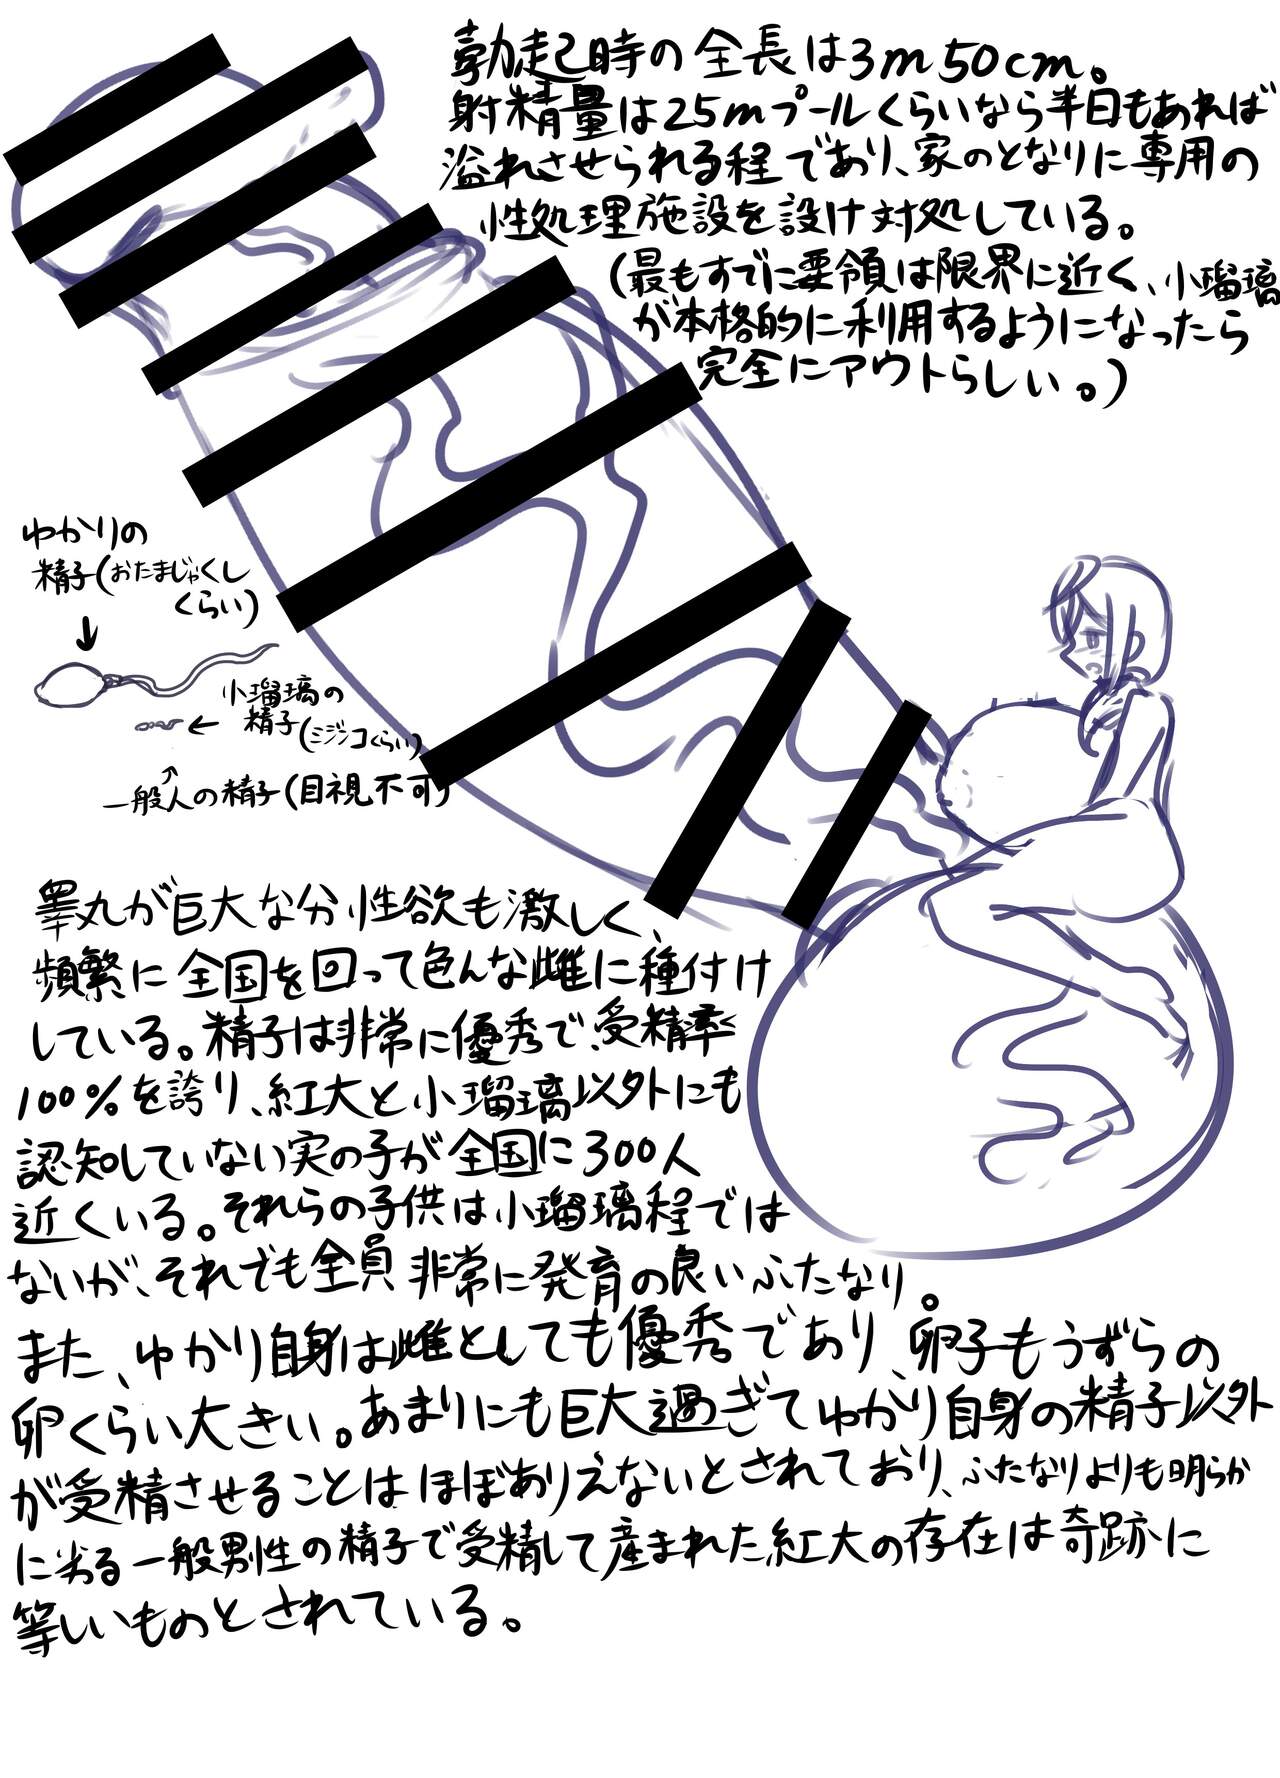 勃起時の全長は3m50cm。
射精量は25mプールくらいなら半日もあれば
溢れさせられる程であり、家のとなりに専用の
性処理施設を設け対処している。
(最もすでに要領は限界に近く、小瑠璃
が本格的に利用するようになったら
完全にアウトらしい。)
ゆかりの
精子(おたまじゃくし
くらい)
小瑠璃の
精子(ミジンコくらい)
一般人の精子(目視不可)
睾丸が巨大な分性欲も激しく、
頻繁に全国を回って色んな雌に種付け
している。精子は非常に優秀で、受精率
100%を誇り、紅大と小瑠璃以外にも
認知していない実の子が全国に300人
近くいる。それらの子供は小瑠璃程では
ないが、それでも全員非常に発育の良いふたなり。
また、ゆかり自身は雌としても優秀であり、卵子もうずらの
卵くらい大きい。あまりにも巨大過ぎてゆかり自身の精子以外
が受精させることはほぼありえないとされており、ふたなりよりも明らか
に劣る一般男性の精子で受精して産まれた紅大の存在は奇跡に
等しいものとされている。